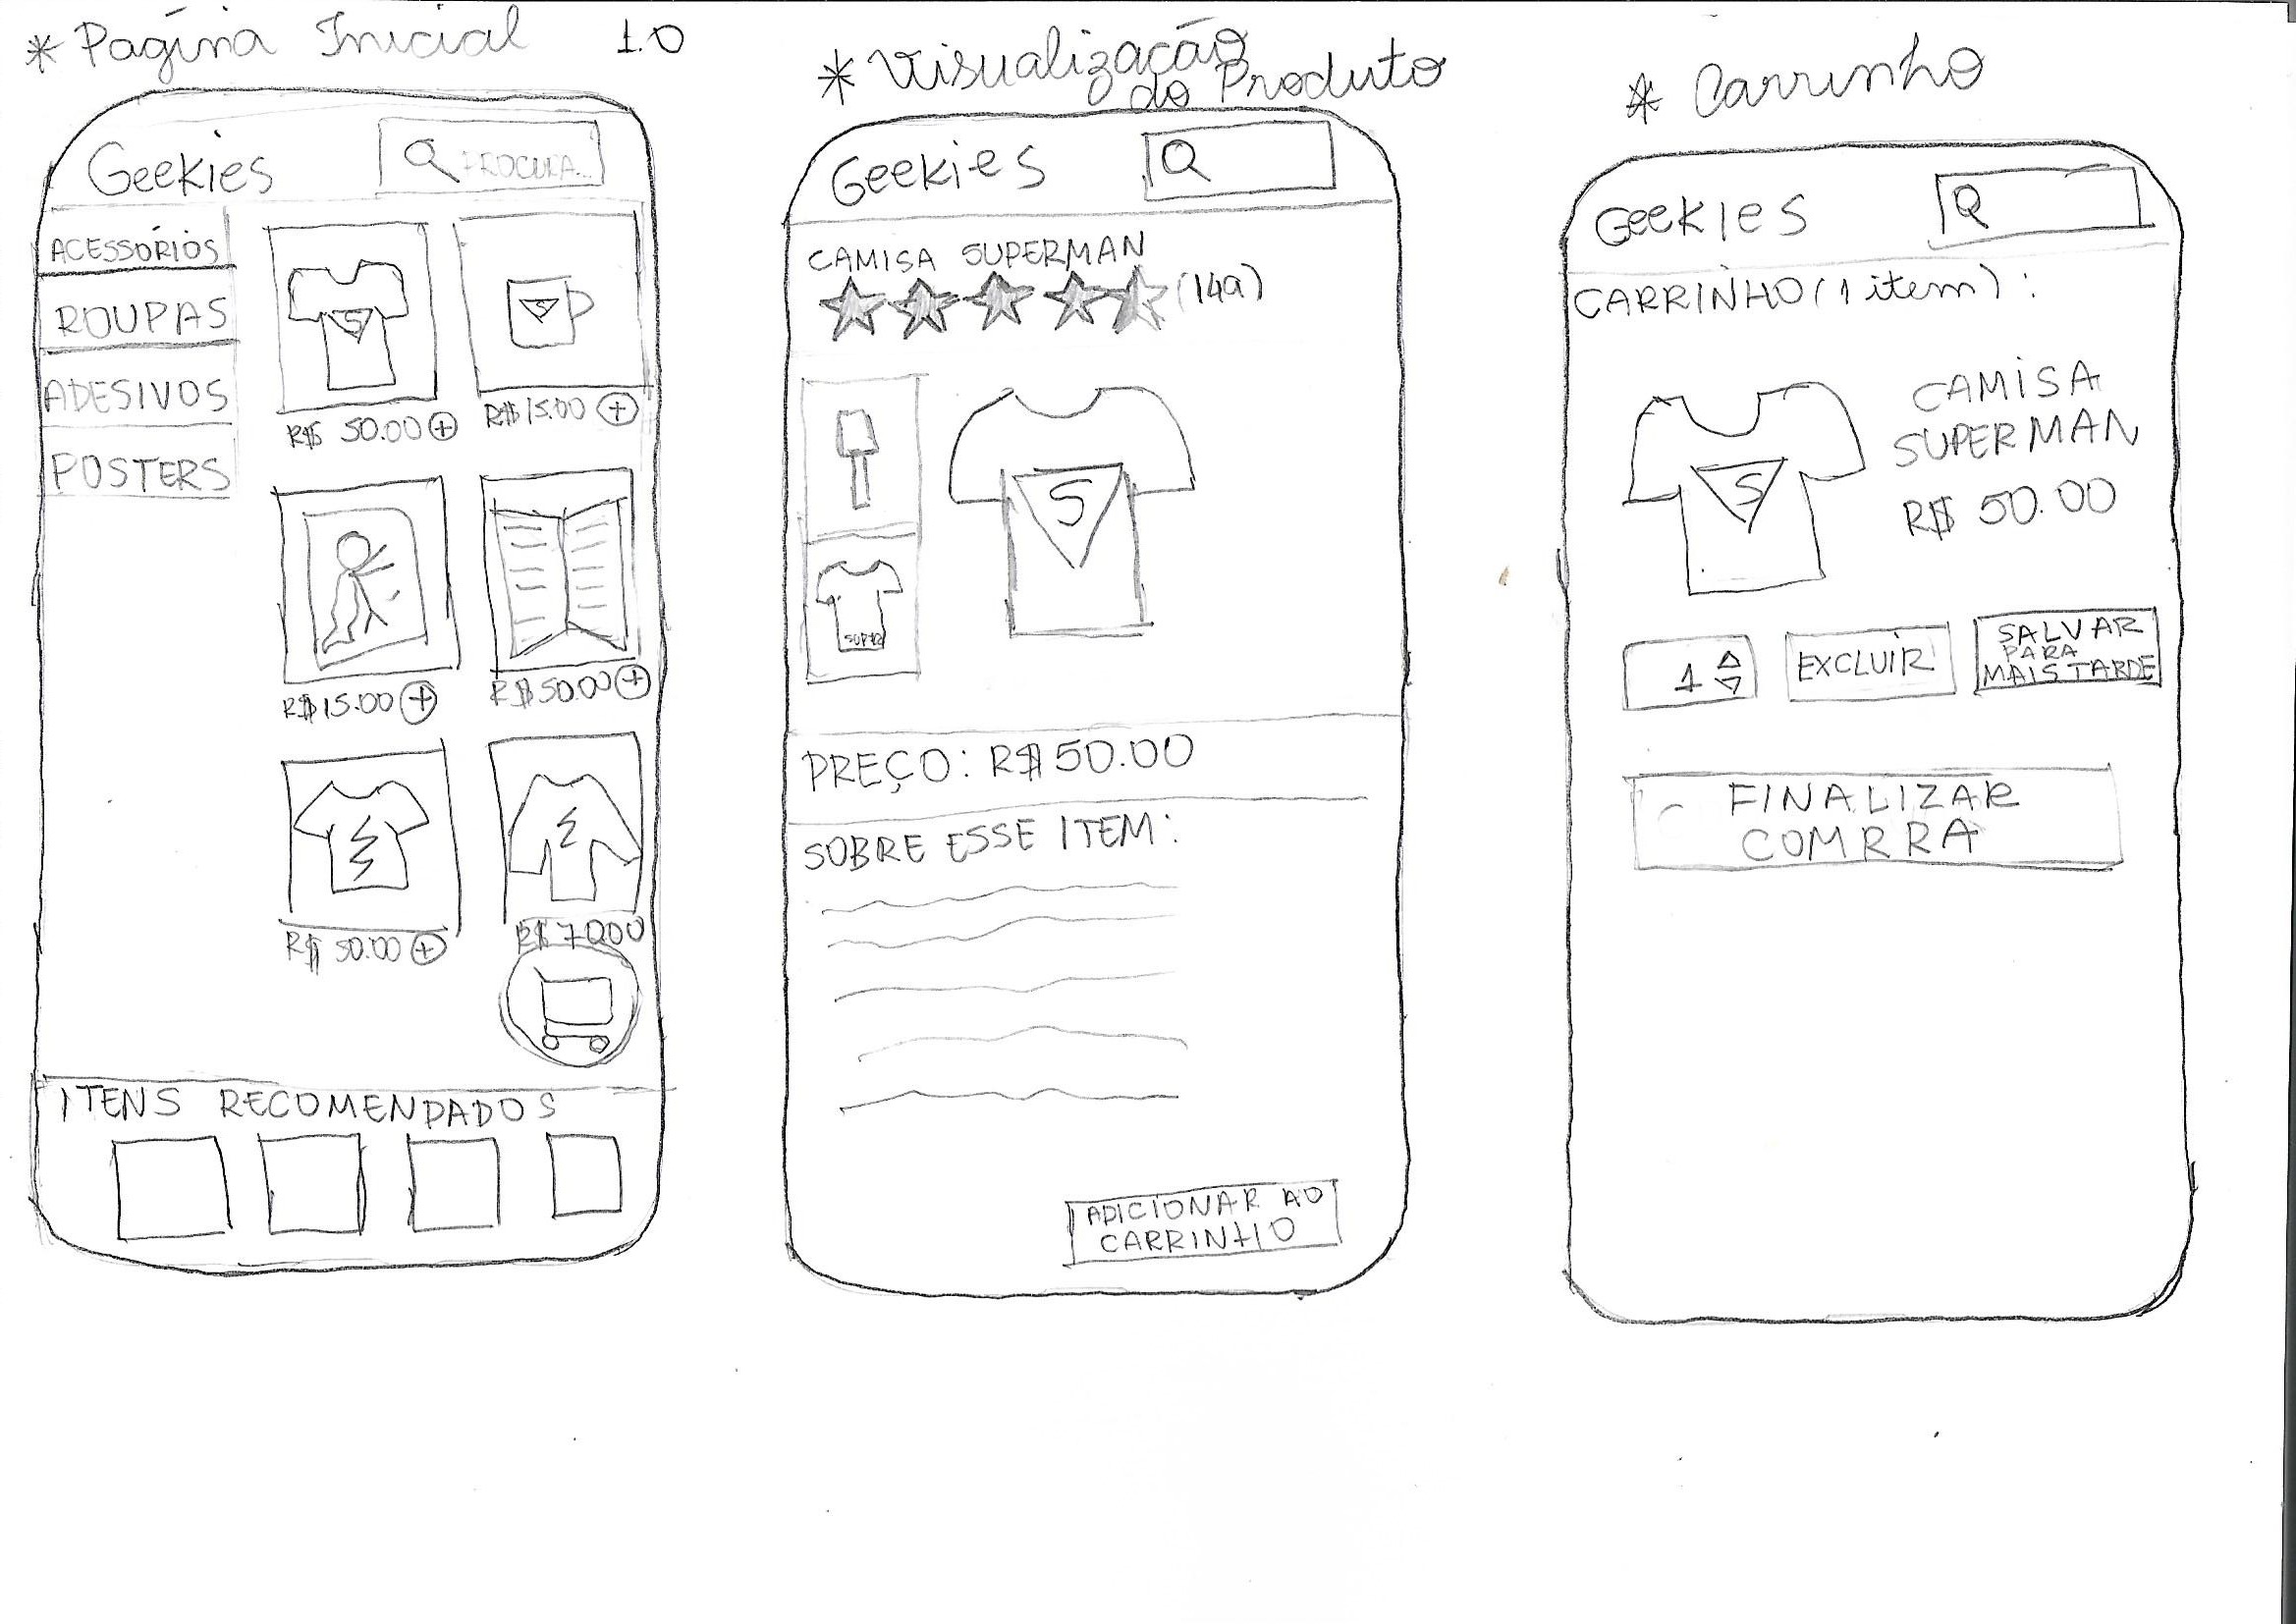 * Página Inicial 1.0
Geekies
PROCURA...
ACESSÓRIOS
ROUPAS
ADESIVOS
POSTERS
S
S
R$ 50.00 +
R$ 15.00 +
R$ 15.00 +
R$ 50.00 +
R$ 50.00 +
R$ 70.00
ITENS RECOMENDADOS
* Visualização
do Produto
Geekies
CAMISA SUPERMAN
(149)
S
SUPER
PREÇO: R$ 50.00
SOBRE ESSE ITEM:
ADICIONAR AO
CARRINHO
* Carrinho
Geekies
CARRINHO (1 item):
CAMISA
SUPERMAN
R$ 50.00
S
1
EXCLUIR
SALVAR
PARA
MAIS TARDE
FINALIZAR
COMRRA